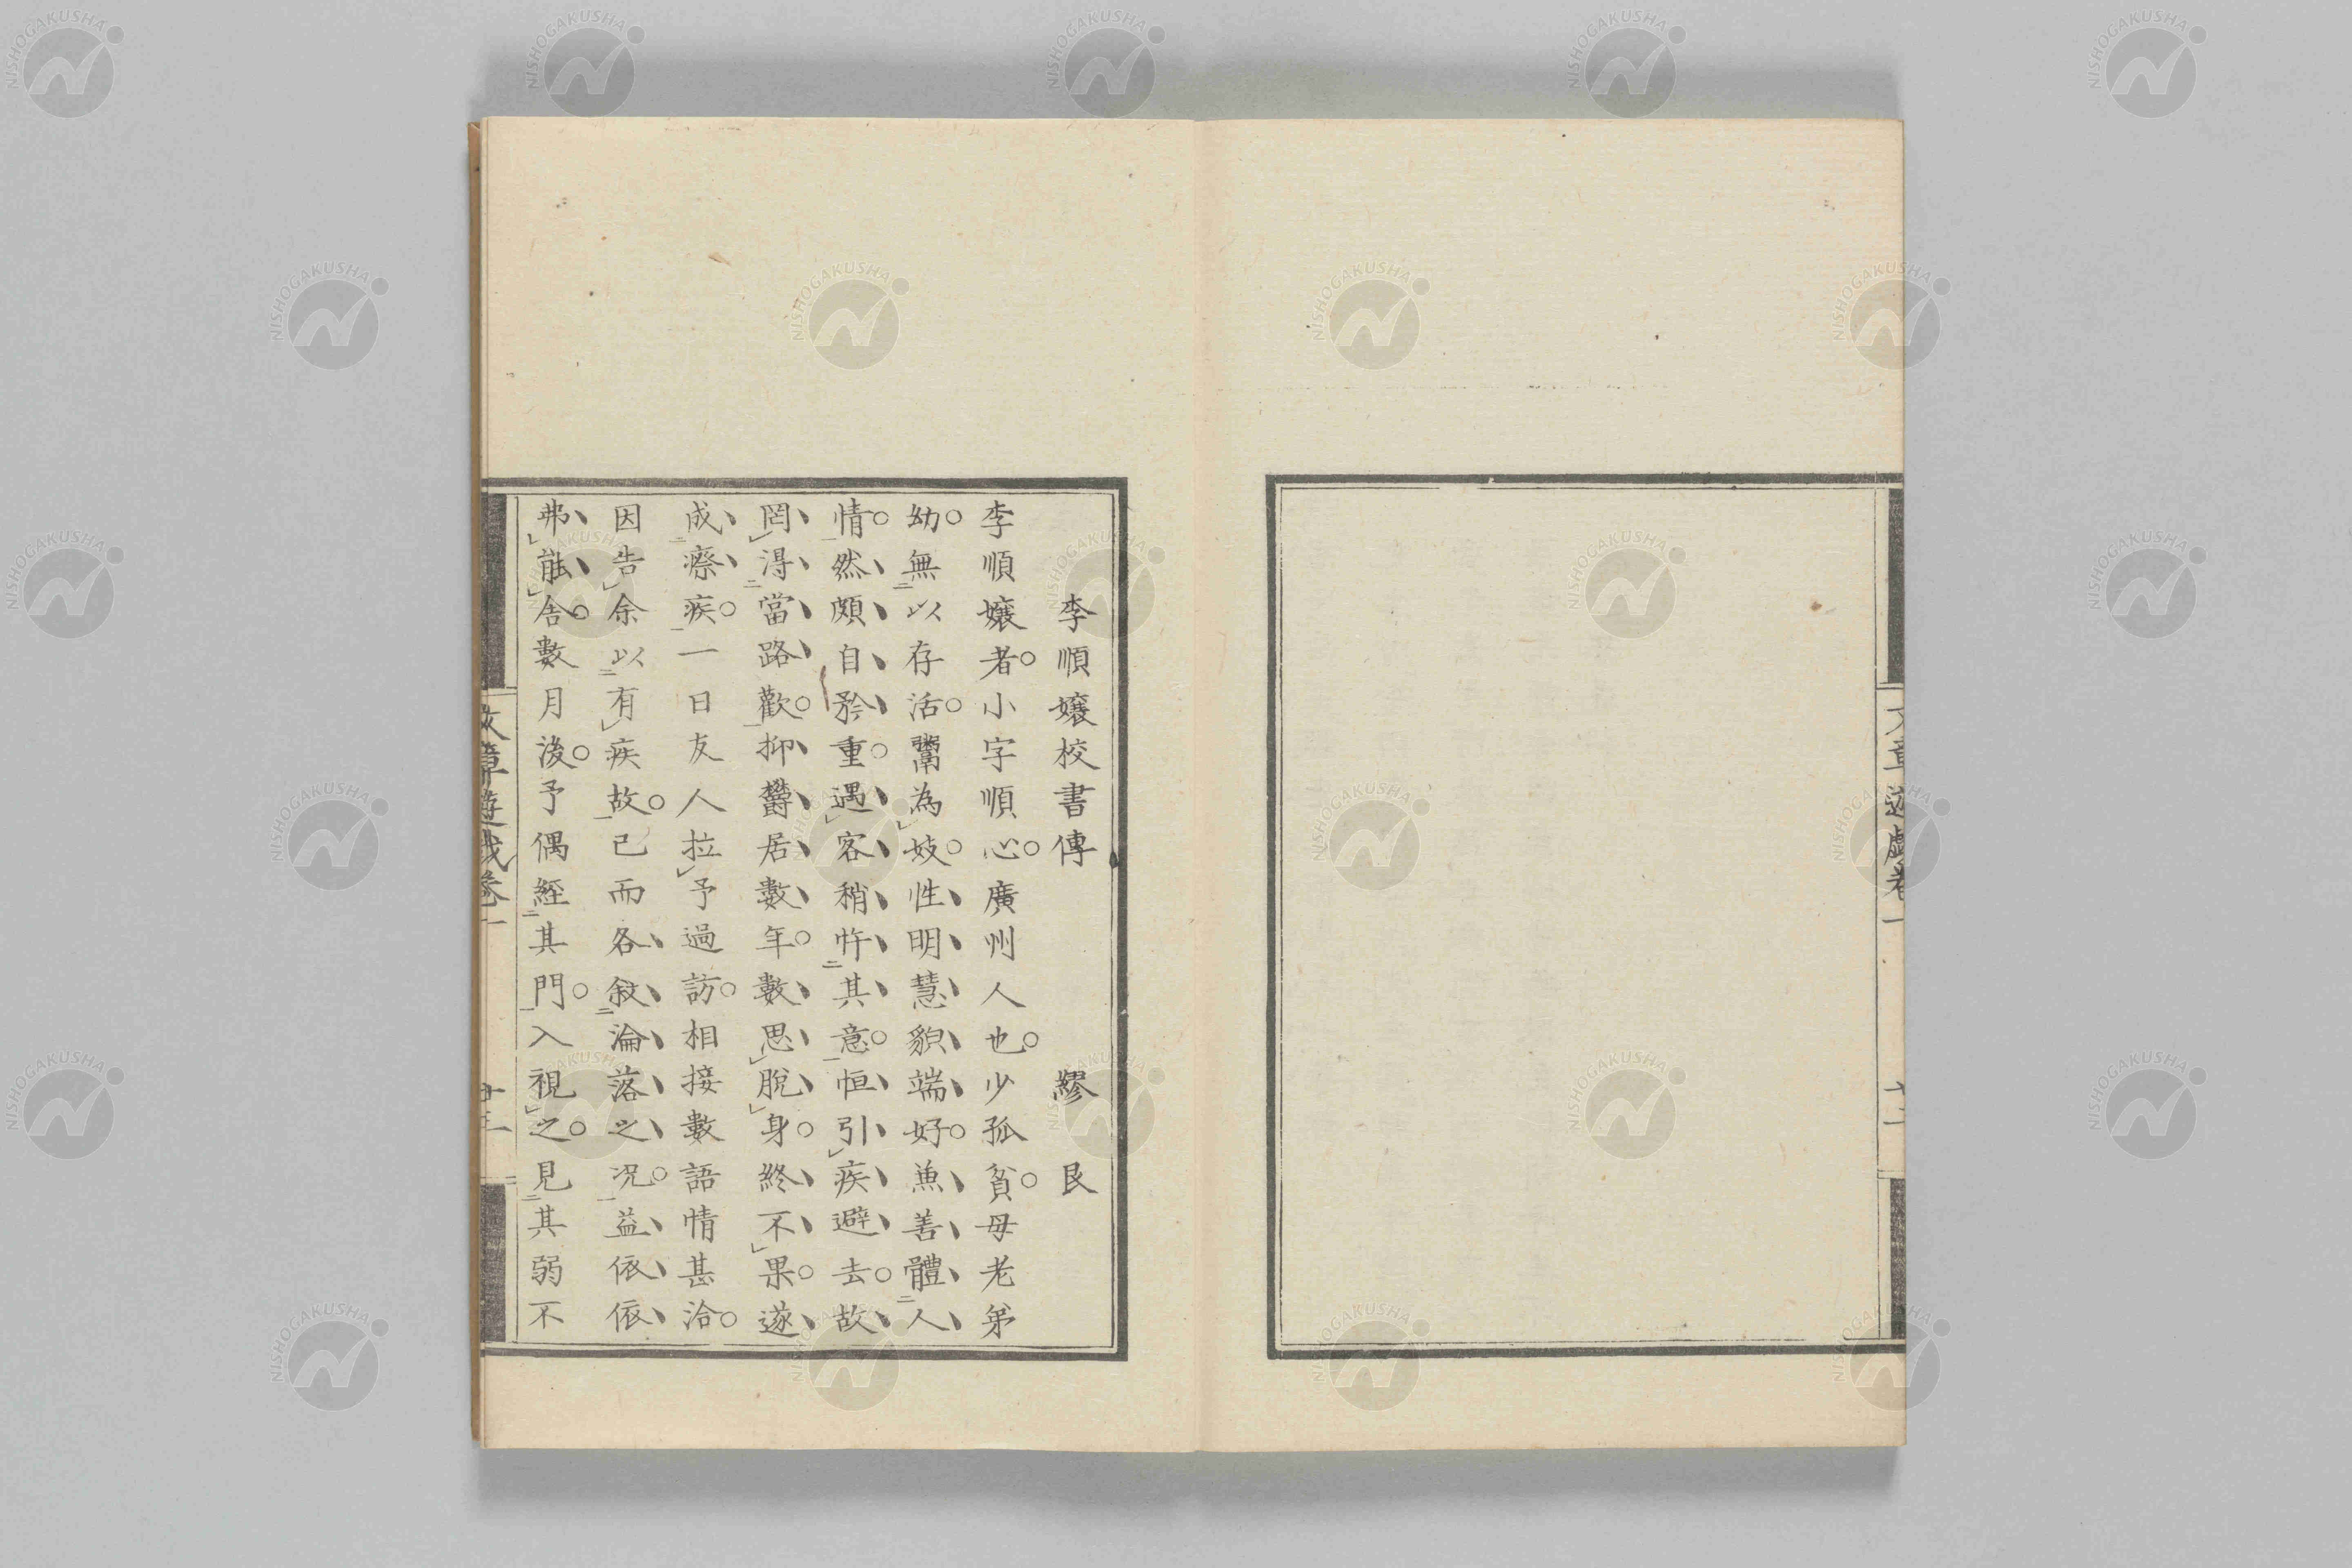 文章遊戲卷一
李順孃校書傳 繆艮
李順孃者。小字順心。廣州人也。少孤貧。母老弟
幼。無以存活。鬻為妓。性明慧貌端好。兼善體人
情。然頗自矜重。遇客稍忤其意。恒引疾避去。故
罔得當路歡。抑鬱居數年。數思脫身。終不果。遂
成瘵疾。一日友人拉予過訪。相接數語情甚洽。
因告余以有疾故。已而各敍淪落之况。益依依
弗能舍。數月後。予偶經其門。入視之。見其弱不
文章遊戲卷一
NISHOGAKUSHA